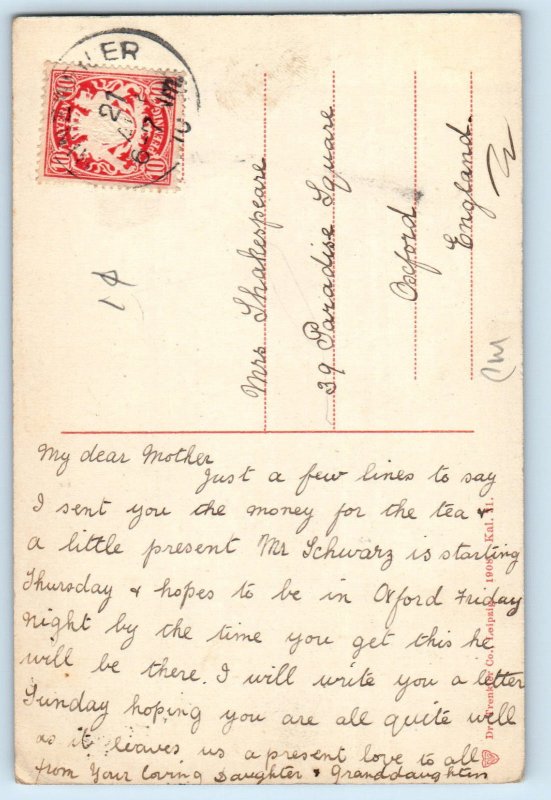 BAYERN
10 10
10 PFENNIG 10
Mrs Shakespeare
39 Paradise Square
Oxford
England
My dear Mother
Just a few lines to say
I sent you the money for the tea &
a little present Mr Schwarz is starting
Thursday & hopes to be in Oxford Friday
night by the time you get this he
will be there. I will write you a letter
Sunday hoping you are all quite well
as it leaves us a present love to all
from Your loving Daughter & Granddaughters
Trenkler Co., Leipzig. 1908 Kal. 11.